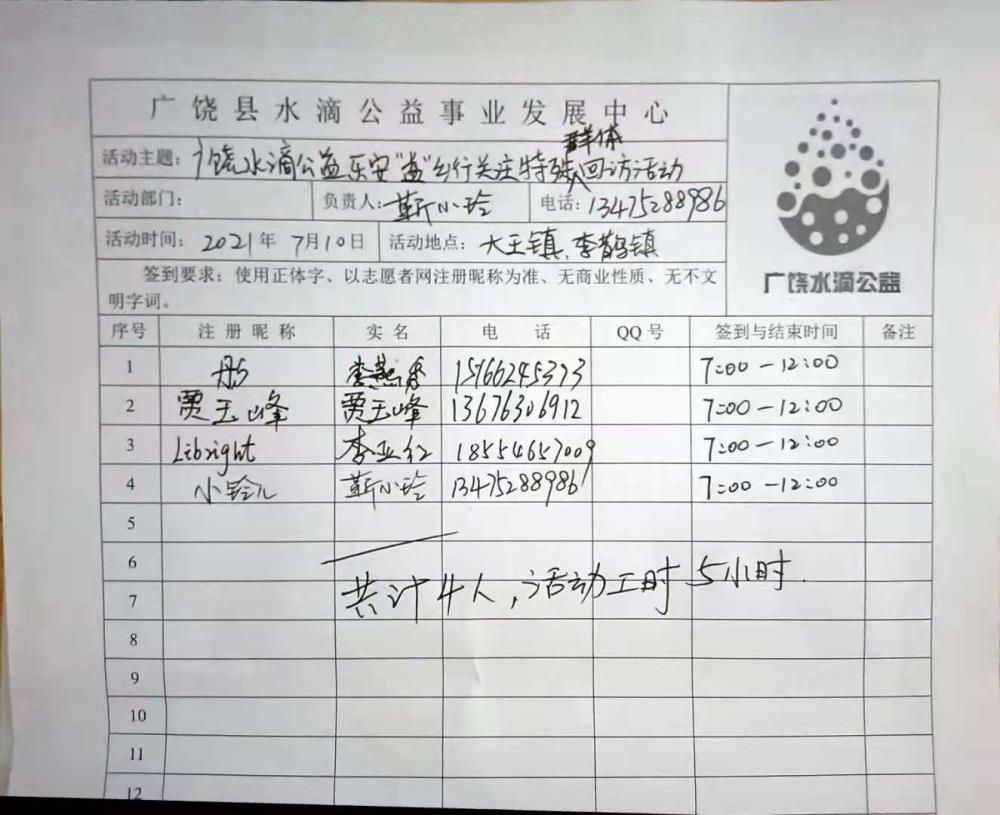 广饶县水滴公益事业发展中心
活动主题：广饶水滴公益乐安“益”乡行关注特殊群体回访活动
活动部门： 负责人：靳小玲 电话：13475288986
活动时间：2021年7月10日 活动地点：大王镇、李鹊镇
签到要求：使用正体字、以志愿者网注册昵称为准、无商业性质、无不文
明字词。
广饶水滴公益
序号 注册昵称 实名 电话 QQ号 签到与结束时间 备注
1 李燕 15166245373 7:00-12:00
2 贾玉峰 贾玉峰 13676306912 7:00-12:00
3 Libright 李亚红 18554657009 7:00-12:00
4 小铃儿 靳小玲 13475288986 7:00-12:00
5
6
共计4人，活动工时5小时.
7
8
9
10
11
12